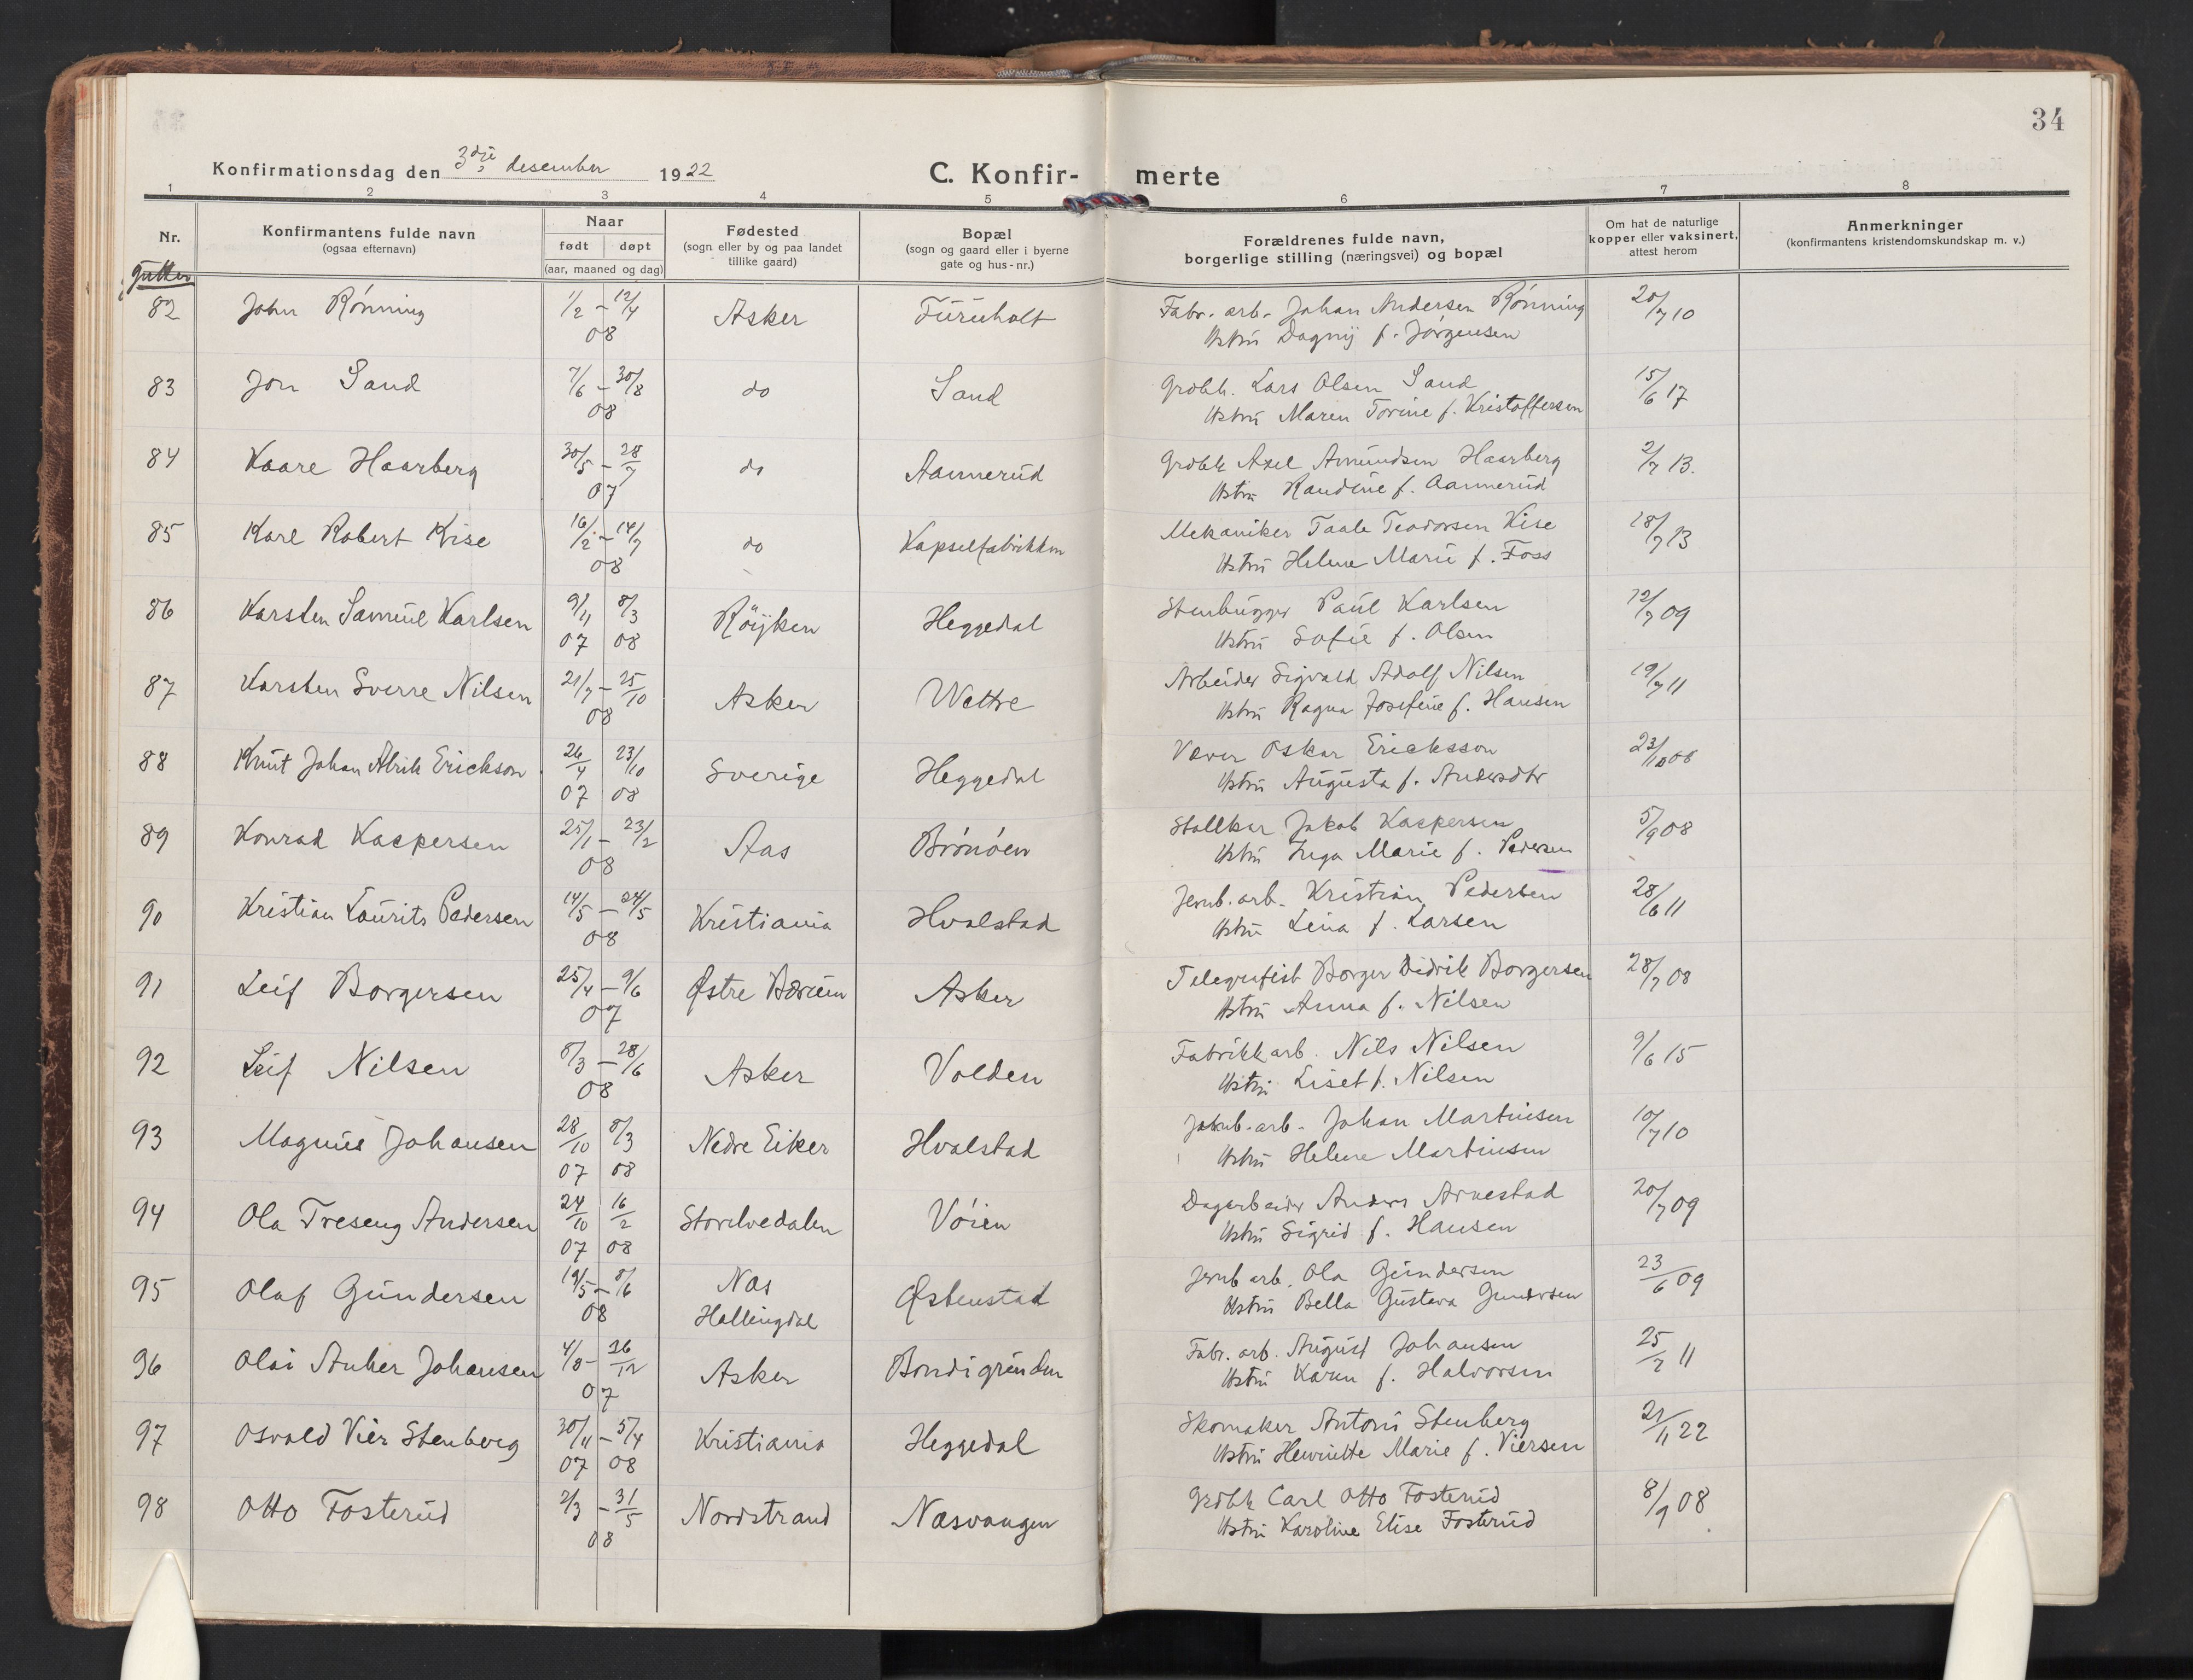 34
Konfirmationsdag den 3die desember 1922
C. Konfir-merte
1 2 3 4 5 6 7 8
Nr.
Konfirmantens fulde navn
(ogsaa efternavn)
Naar
født døpt
(aar, maaned og dag)
Fødested
(sogn eller by og paa landet
tillike gaard)
Bopæl
(sogn og gaard eller i byerne
gate og hus-nr.)
Forældrenes fulde navn,
borgerlige stilling (næringsvei) og bopæl
Om hat de naturlige
kopper eller vaksinert,
attest herom
Anmerkninger
(konfirmantens kristendomskundskap m. v.)
Gutter
82 John Rønning 1/2 – 12/4 08 Asker Furuholt Fabr. arb. Johan Andersen Rønning 20/7 10
Ustru Dagny f. Jørgensen
83 Jon Sand 7/6 – 30/8 08 do Sand Grdbk. Lars Olsen Sand 15/6 17
Hstru Maren Torine f. Kristoffersen
84 Kaare Haarberg 30/5 – 28/7 07 do Aannerud Grdbk Axel Amundsen Haarberg 2/7 13.
Hstru Randine f. Aannerud
85 Karl Robert Kise 16/2 – 14/7 08 do Kapselfabrikken Mekaniker Taale Teodorsen Kise 18/7 13
Hstru Helene Marie f. Foss
86 Karsten Samuel Karlsen 9/11 07 8/3 08 Røyken Heggedal Stenhugger Paul Karlsen 12/7 09
Hstru Sofie f. Olsen
87 Karsten Sverre Nilsen 21/7 – 25/10 08 Asker Wettre Arbeider Sigvald Adolf Nilsen 19/7 11
Hstru Ragna Josefine f. Hansen
88 Knut Johan Alrik Erickson 26/4 07 23/10 08 Sverige Heggedal Væver Oskar Ericksson 23/10 08
Hstru Augusta f. Andersdtr
89 Konrad Kaspersen 25/1 – 23/2 08 Aas Brønøen Stallkar Jakob Kaspersen 5/9 08
Hstru Inga Marie f. Pedersen
90 Kristian Laurits Pedersen 14/5 – 24/5 08 Kristiania Hvalstad Jernb. arb. Kristian Pedersen 28/6 11
Hstru Lina f. Larsen
91 Leif Borgersen 25/4 – 9/6 07 Østre Bærum Asker Telegrafist Borger Didrik Borgersen 28/7 08
Hstru Anna f. Nilsen
92 Leif Nilsen 8/3 – 28/6 08 Asker Volden Fabrikkarb. Nils Nilsen 9/6 15
Hstru Liset f. Nilsen
93 Magnus Johansen 28/10 07 8/3 08 Nedre Eiker Hvalstad Jernb. arb. Johan Martinsen 10/7 10
Hstru Helene Martinsen
94 Ola Treseng Andersen 24/10 07 16/2 08 Storelvedalen Vøien Dagarbeider Anders Arnestad 20/7 09
Hstru Sigrid f. Hansen
95 Olaf Gundersen 19/5 – 8/6 08 Nas Hallingdal Østenstad Jernb arb. Ola Gundersen 23/6 09
Hstru Bella Gustava Gundersen
96 Olai Anker Johansen 4/8 – 26/12 07 Asker Bondigrunden Fabr. arb. August Johansen 25/7 11
Hstru Karen f. Halvorsen
97 Osvald Vier Stenberg 30/11 07 – 5/4 08 Kristiania Heggedal Skomaker Anton Stenberg 21/11 22
Hstru Henriette Marie f. Viersen
98 Otto Fosterud 2/3 – 31/5 08 Nordstrand Næsvangen Grdbk Carl Otto Fosterud 8/9 08
Hstru Karoline Elise Fosterud